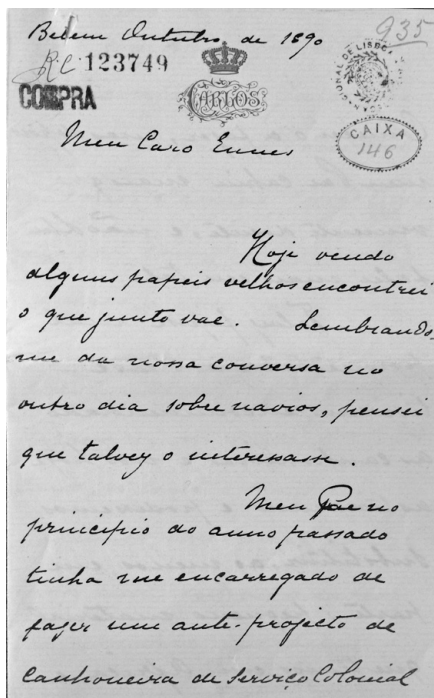 Belem Outubro de 1890
935
RC 123749
COMPRA
CARLOS
NAL DE LISBOA
CAIXA
146
Meu Caro Ennes
Hoje vendo
alguns papeis velhos encontrei
o que junto vae. Lembrando-
me da nossa conversa no
outro dia sobre navios, pensei
que talvez o interessasse.
Meu Pae no
principio do anno passado
tinha me encarregado de
fazer um ante-projecto de
Canhoneira de Serviço Colonial